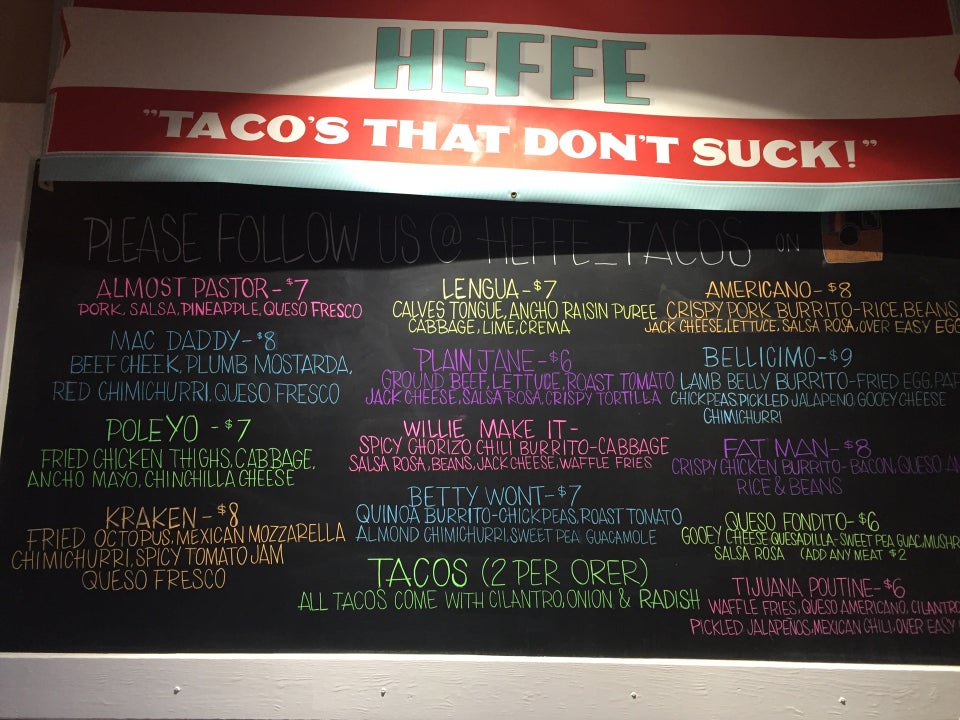 HEFFE
"TACO'S THAT DON'T SUCK!"
PLEASE FOLLOW US @ HEFFE_TACOS ON
ALMOST PASTOR-$7
PORK, SALSA, PINEAPPLE, QUESO FRESCO
MAC DADDY-$8
BEEF CHEEK, PLUMB MOSTARDA,
RED CHIMICHURRI, QUESO FRESCO
POLEYO-$7
FRIED CHICKEN THIGHS, CABBAGE,
ANCHO MAYO, CHINCHILLA CHEESE
KRAKEN-$8
FRIED OCTOPUS, MEXICAN MOZZARELLA
CHIMICHURRI, SPICY TOMATO JAM
QUESO FRESCO
LENGUA-$7
CALVES TONGUE, ANCHO RAISIN PUREE
CABBAGE, LIME, CREMA
PLAIN JANE-$6
GROUND BEEF, LETTUCE, ROAST TOMATO
JACK CHEESE, SALSA ROSA, CRISPY TORTILLA
WILLIE MAKE IT-
SPICY CHORIZO CHILI BURRITO-CABBAGE
SALSA ROSA, BEANS, JACK CHEESE, WAFFLE FRIES
BETTY WONT-$7
QUINOA BURRITO-CHICKPEAS, ROAST TOMATO
ALMOND CHIMICHURRI, SWEET PEA GUACAMOLE
TACOS (2 PER ORER)
ALL TACOS COME WITH CILANTRO, ONION & RADISH
AMERICANO-$8
CRISPY PORK BURRITO-RICE, BEANS,
JACK CHEESE, LETTUCE, SALSA ROSA, OVER EASY EGG
BELLICIMO-$9
LAMB BELLY BURRITO-FRIED EGG,
CHICKPEAS PICKLED JALAPENO, GOOEY CHEESE
CHIMICHURRI
FAT MAN-$8
CRISPY CHICKEN BURRITO-BACON, QUESO
RICE & BEANS
QUESO FONDITO-$6
GOOEY CHEESE QUESADILLA-SWEET PEA GUAC,
SALSA ROSA (ADD ANY MEAT $2
TIJUANA POUTINE-$6
WAFFLE FRIES, QUESO AMERICANO, CILANTRO
PICKLED JALAPEÑOS, MEXICAN CHILI, OVER EASY